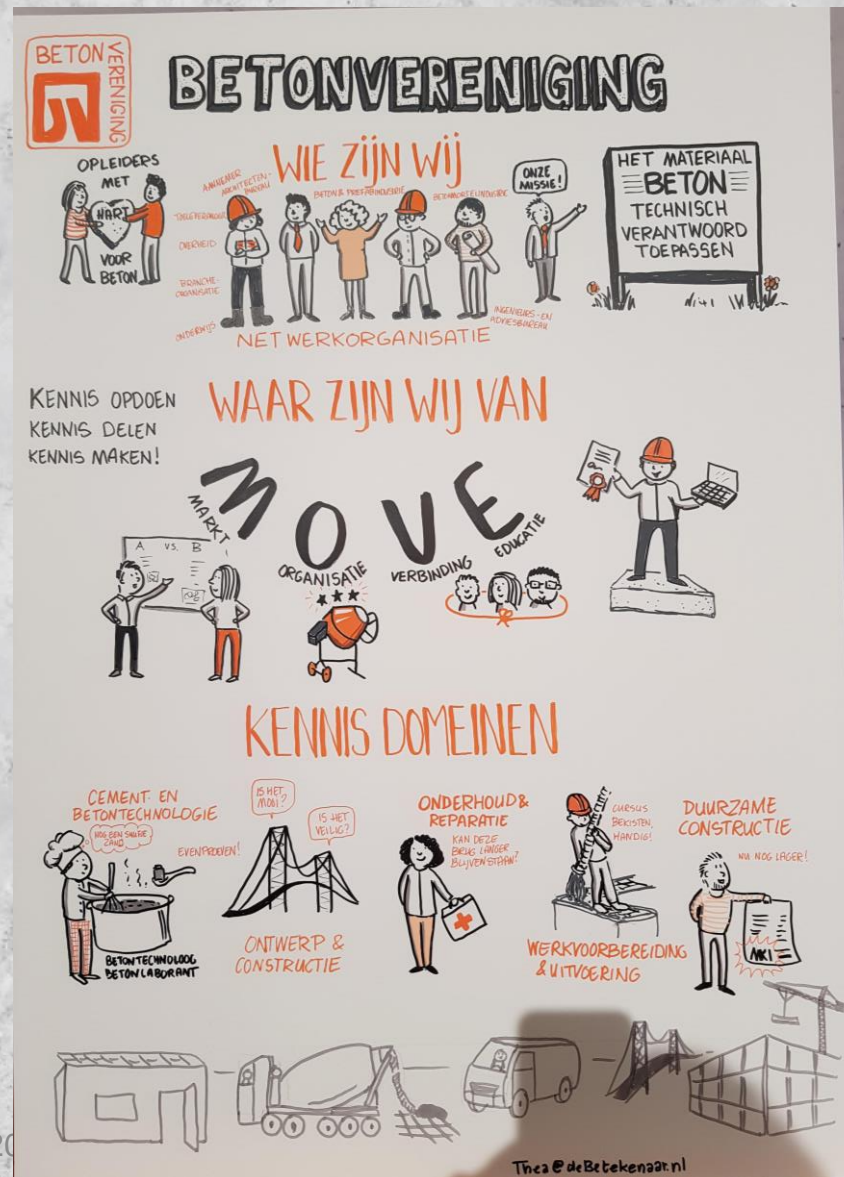 BETON
VERENIGING
BETONVERENIGING
OPLEIDERS
MET
HART
VOOR
BETON
WIE ZIJN WIJ
AANNEMER
ARCHITECTEN-
BUREAU
BETON & PREFAB INDUSTRIE
BETONMORTELINDUSTRIE
OVERHEID
BRANCHE-
ORGANISATIE
ONDERWIJS
INGENIEURS- EN
ADVIESBUREAU
NETWERKORGANISATIE
ONZE
MISSIE!
HET MATERIAAL
BETON
TECHNISCH
VERANTWOORD
TOEPASSEN
KENNIS OPDOEN
KENNIS DELEN
KENNIS MAKEN!
WAAR ZIJN WIJ VAN
MOVE
MARKT
ORGANISATIE
VERBINDING
EDUCATIE
A VS. B
KENNIS DOMEINEN
CEMENT- EN
BETONTECHNOLOGIE
NOG EEN SNUFJE
ZAND
EVEN PROEVEN!
BETONTECHNOLOOG
BETONLABORANT
IS HET
MOOI?
IS HET
VEILIG?
ONTWERP &
CONSTRUCTIE
ONDERHOUD &
REPARATIE
KAN DEZE
BRUG LANGER
BLIJVEN STAAN?
CURSUS
BEKISTEN,
HANDIG!
WERKVOORBEREIDING
& UITVOERING
DUURZAME
CONSTRUCTIE
NU NOG LAGER!
MKI
Thea@deBetekenaar.nl